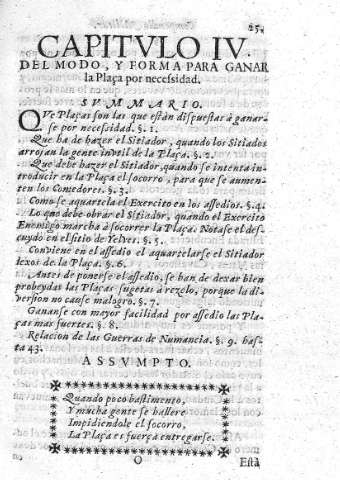 25
CAPITVLO IV.
DEL MODO, Y FORMA PARA GANAR
la Plaça por necessidad.
SVMMARIO.
QVe Plaças son las que estàn dispuestas à ganar-
se por necessidad. §. 1.
Que ha de hazer el Sitiador, quando los Sitiados
arrojan la gente invtil de la Plaça. §. 2.
Que debe hazer el Sitiador, quando se intenta in-
troducir en la Plaça el socorro, para que se aumen-
ten los Comedores. §. 3.
Como se aquartela el Exercito en los assedios. §. 4.
Lo que debe obrar el Sitiador, quando el Exercito
Enemigo marcha à socorrer la Plaça. Notase el des-
cuydo en el sitio de Yelves. §. 5.
Conviene en el assedio el aquartelarse el Sitiador
lexos de la Plaça. §. 6.
Antes de ponerse el assedio, se han de dexar bien
probeydas las Plaças sugetas à rezelo, porque la di-
version no cause malogro. §. 7.
Gananse con mayor facilidad por assedio las Pla-
ças mas fuertes. §. 8.
Relacion de las Guerras de Numancia. §. 9. has-
ta 43.
ASSVMPTO.
Quando poco bastimento,
Y mucha gente se hallere
Impidiendole el socorro,
La Plaça es fuerça entregarse.
O
Està